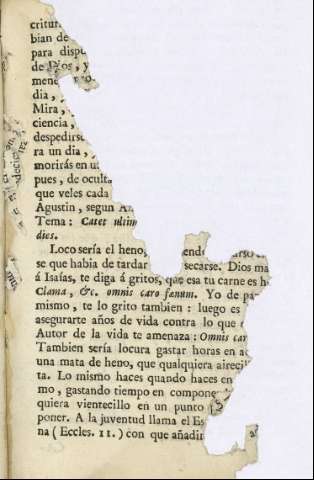 critur
bian de
para dispu
de Dios, y
mene
dia, y
Mira,
ciencia,
despedirse
ra un dia, y
morirás en un
pues, de oculta
que veles cada
Agustin, segun
Tema: Catet ultim
dies.
Loco sería el heno,
se que habia de tardar secarse. Dios ma
á Isaías, te diga á gritos, que esa tu carne es h
Clama, &c. omnis caro fænum. Yo de pa
mismo, te lo grito tambien: luego es
asegurarte años de vida contra lo que
Autor de la vida te amenaza: Omnis car
Tambien sería locura gastar horas en
una mata de heno, que qualquiera airecil
ta. Lo mismo haces quando haces en
mo, gastando tiempo en compone
quiera vientecillo en un punto
poner. A la juventud llama el Es
na (Eccles. 11.) con que añadir